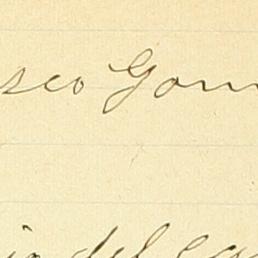 sco Gom
in del ca